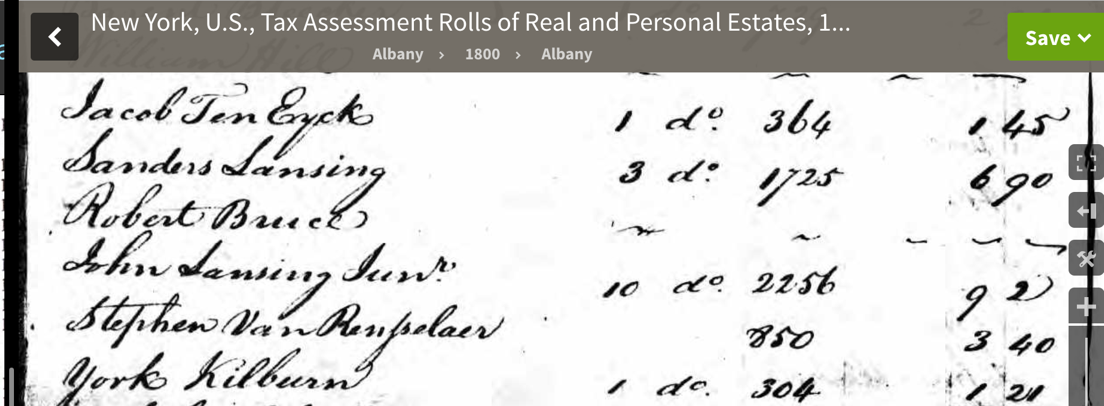 New York, U.S., Tax Assessment Rolls of Real and Personal Estates, 1...
Albany › 1800 › Albany
Save
William Hill
Jacob Ten Eyck 1 do. 364 1 45
Sanders Lansing 3 do. 1725 6 90
Robert Bruce
John Lansing Junr. 10 do. 2256 9 2
Stephen Van Rensselaer 850 3 40
York Kilburn 1 do. 304 1 21